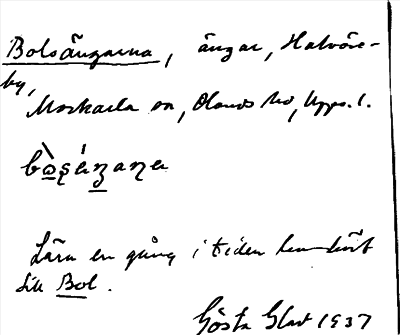 Bolsängarna, ängar, Halvöre-
by,
Morkarla sn, Olands hd, Upps. l.
Lära en gång i tiden ha hört
till Bol.
Gösta Glad 1937